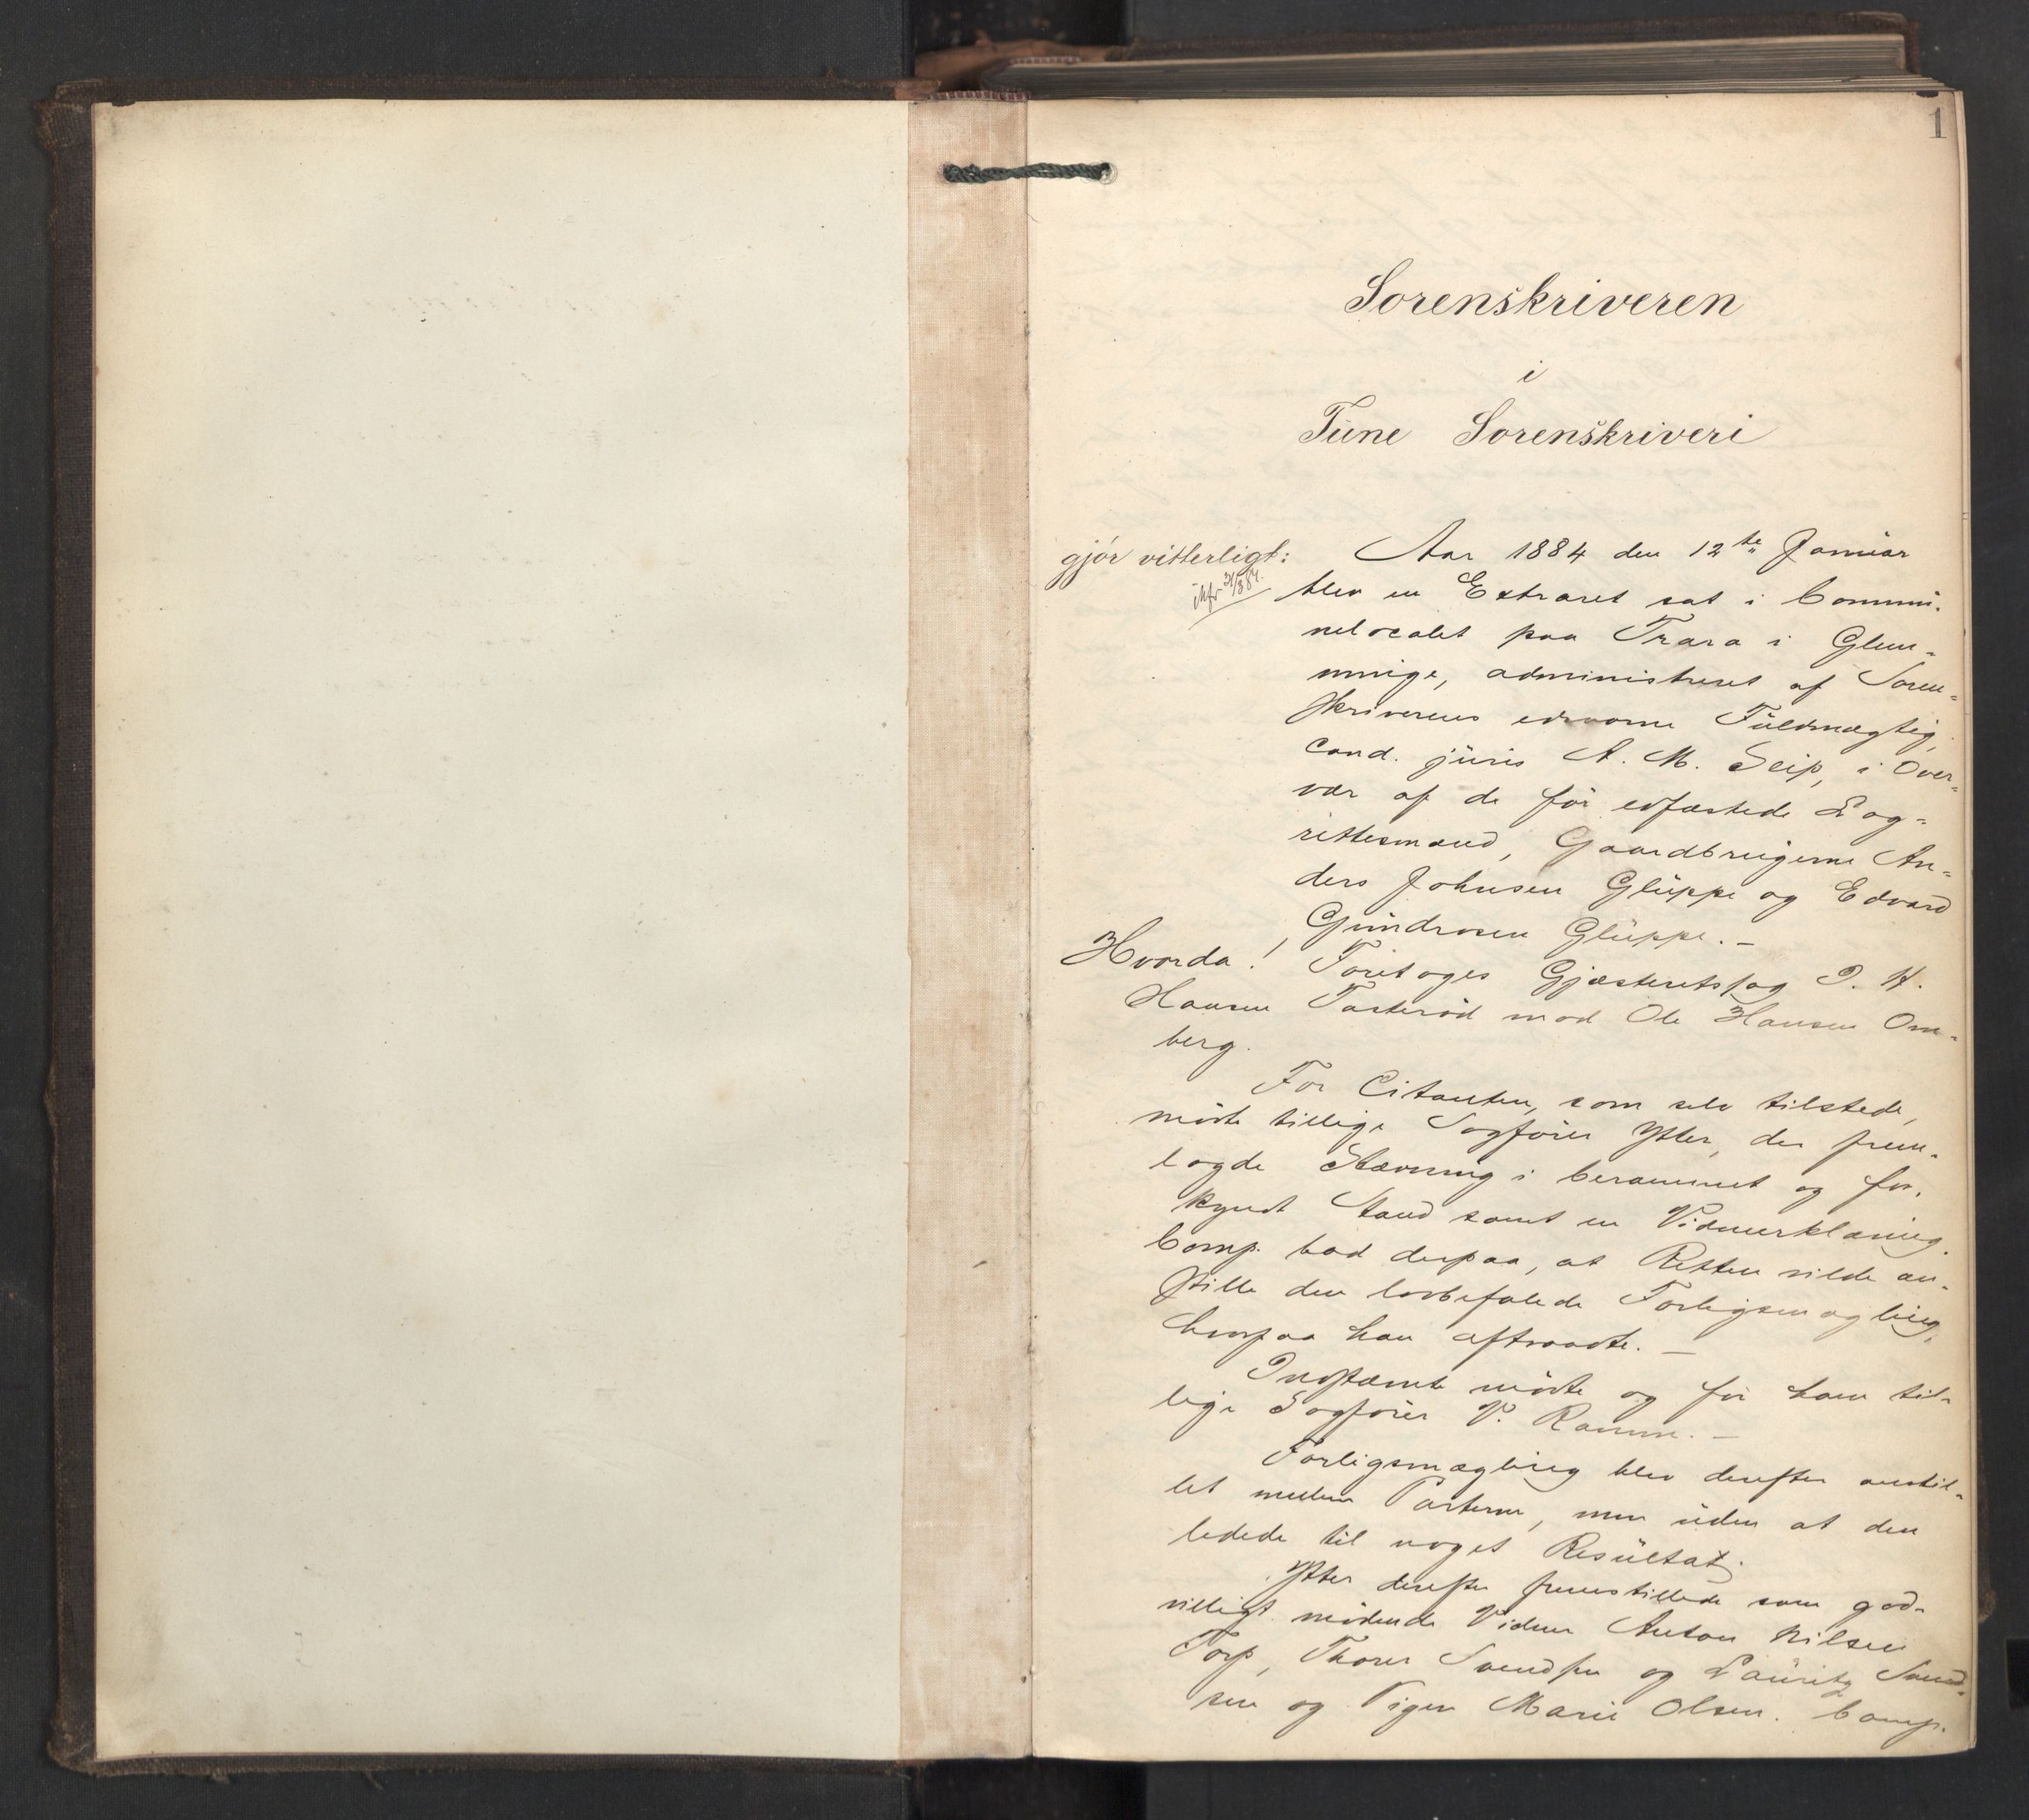 1
Sorenskriveren
i
Tune Sorenskriveri
gjör vitterligt:
Aar 1884 den 12te Januar
blev en Extraret sat i Commu-
nelocalet paa Trara i Glem-
minge, administreret af Soren-
skriverens edsvorne Fuldmægtig,
cand. juris A. M. Seip, i Over-
vær af de för edfæstede Lag-
rettesmænd, Gaardbrugerne An-
ders Johnsen Gluppe og Edvard
Gundrosen Gluppe. -
Hvorda!
Foretoges Gjæsteretssag
Hansen Tasteröd mod Ole Hansen Om-
berg.
For Citanten, som selv tilstede,
mödte tillige Sagförer Ytter, der frem-
lagde Stævning i berammet og for-
kyndt Stand samt en Vidneerklæring.
Comp. bad derpaa, at Retten vilde an-
stille den lovbefalede Forligsmægling,
hvorpaa han aftraadte. -
Indstævnte mödte og for ham til-
lige Sagförer V. Ramm. -
Forligsmægling blev derefter anstil-
let mellem Parterne, men uden at den
ledede til noget Resultat.
Ytter derefter fremstillede som god-
villigt mödende Vidner Anton Nilsen
Torp, Thorer Svendsen og Lauritz Svend-
sen og Pigen Marie Olsen. Comp.